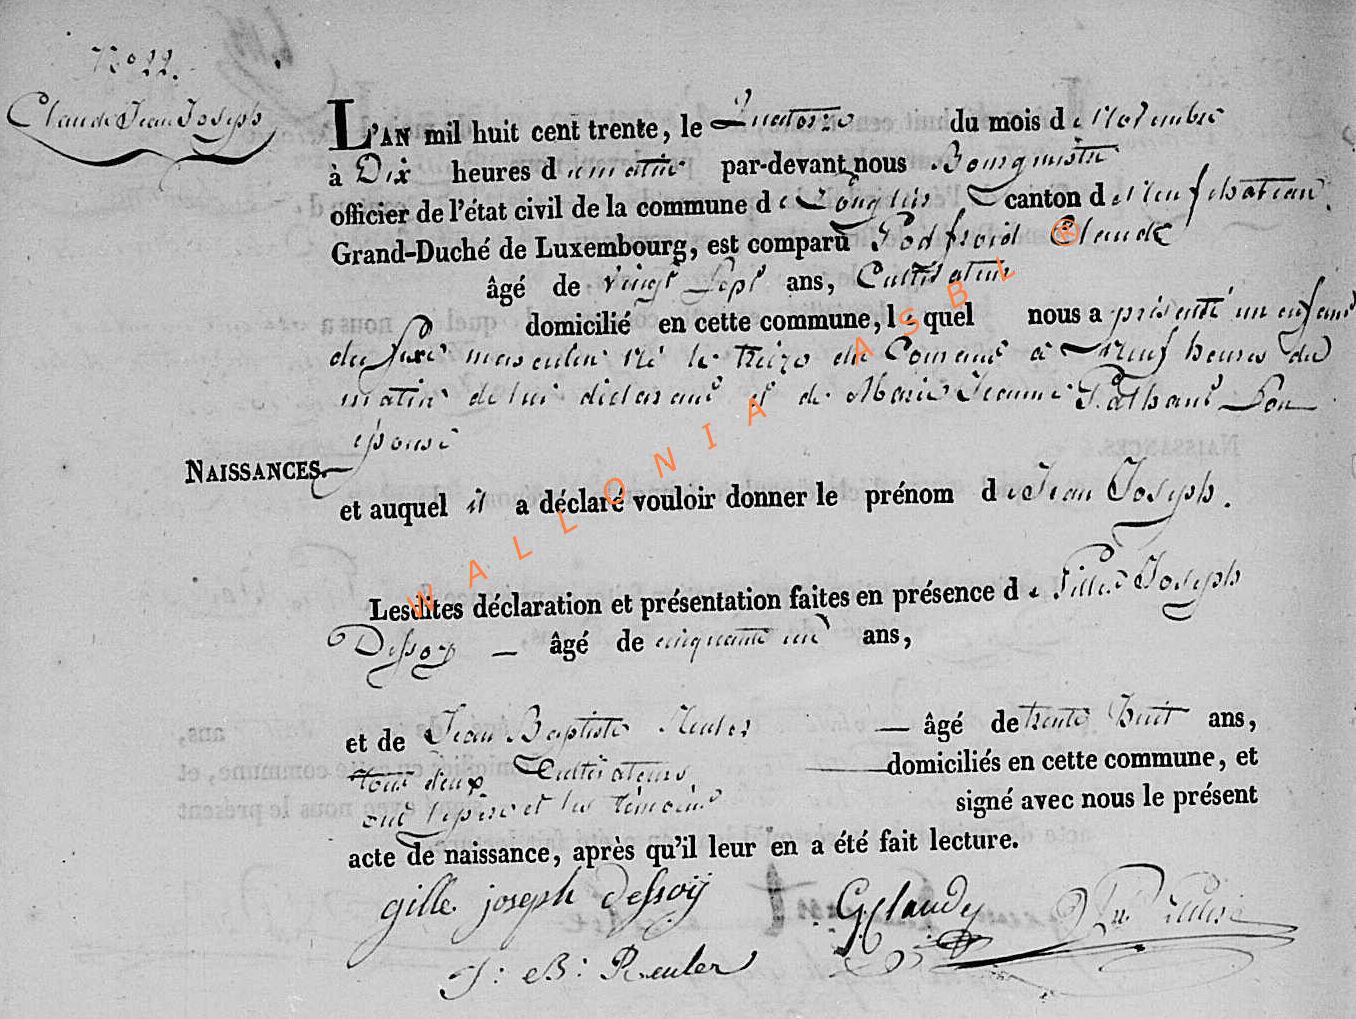 N° 22.
Claude Jean Joseph
L'AN mil huit cent trente, le Quatorze du mois de Novembre
à Dix heures du matin par-devant nous Bourgmestre
officier de l'état civil de la commune de Longlier canton de Neufchateau.
Grand-Duché de Luxembourg, est comparu Godfroid Claude
âgé de vingt Sept ans, Cultivateur
domicilié en cette commune, lequel nous a présenté un enfant
du sexe masculin né le treize du Courant à neuf heures du
matin de lui déclarant et de Marie Jeanne Son
épouse
NAISSANCES.
et auquel il a déclaré vouloir donner le prénom de Jean Joseph.
Lesdites déclaration et présentation faites en présence de Gille Joseph
Dessoy âgé de cinquante un ans,
et de Jean Baptiste Reuler âgé de trente huit ans,
tous deux Cultivateurs domiciliés en cette commune, et
ont le père et les témoins signé avec nous le présent
acte de naissance, après qu'il leur en a été fait lecture.
gille joseph dessoÿ GClaude
J: B: Reuler
WALLONIA ASBL ®